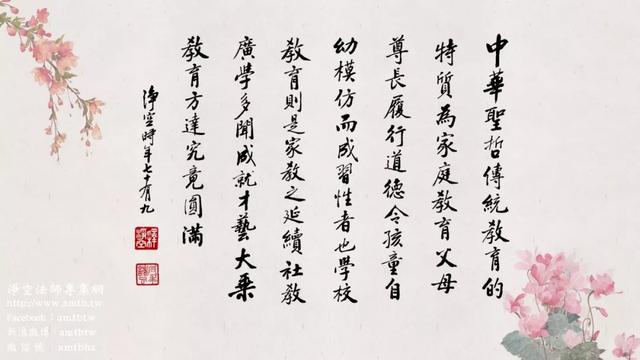 中華聖哲傳統教育的
特質為家庭教育父母
尊長履行道德令孩童自
幼模仿而成習性者也學校
教育則是家教之延續社教
廣學多聞成就才藝大乘
教育方達究竟圓滿
淨空時年七十有九
淨空法師專集網
http://www.amtb.tw
facebook: amtbtw
新浪微博: amtbtw
微信號: amtbhz